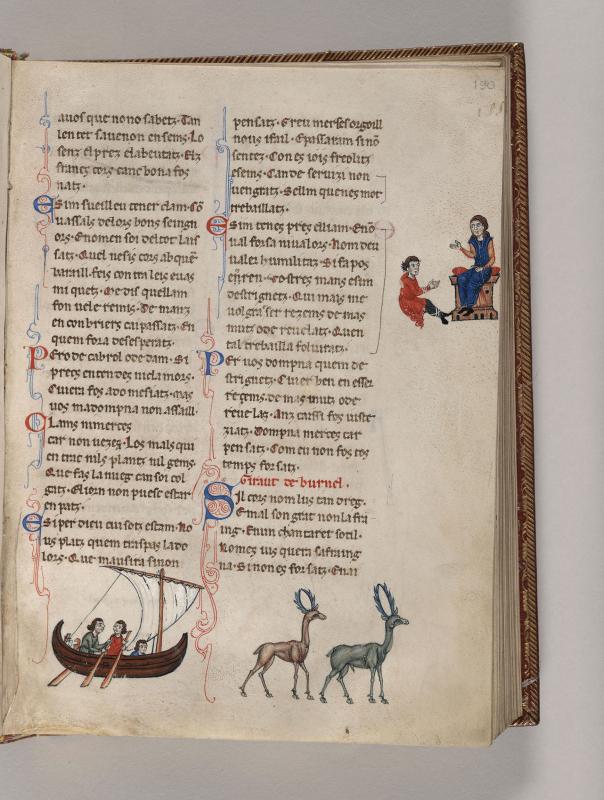 190
auos que no no sabetz· Tan
len tet sauenon en sems· Lo
senz el prez el abeutatz· Elz
francs cors canc bona fos
natz·
Sim sueill eu tener clam· Co
uassals de lors bons seingn
ors· Enomen soi del tot lais
satz· Quel
tan les euas
mi quetz· Me dis quel lam
fon uele remis· De manz
en conbriers cui passatz· En
quem fora desesperatz·
Pero de cabrol o de dam· Si
prers enten des nicla mors·
uos ma dompna non assaill·
Clams nimerces
car non uezez· Los mals qui
en trac nils planz nil gems·
Que fas la nueg can soi col
gatz· E iorn non puesc estar
en patz·
E si per dieu cui sotz estam· No
us platz quem traspas la do
lors· Que mausira sinon
pensatz· Greu merses orgoill
nous ifail· E passaram si no
sentez· Con es iois freolitz
esems· Can de seruizi non
uengratz· Sellim que nes mot
trebaillatz·
Sim tenes pres el liam· E no
ual forsa ni ualors· Nom deu
ualer humilitatz· Si fa pos
en ren· Vostres mans e sim
destrignetz· Qui mais me
uolgra ser rezems de mas
mutz o de reuelatz· Quen
tal trebailla fos uiratz·
Per uos dompna quem de
strignetz· Cui er ben en esser
regems· de mas mutz o de
reue latz· Anz carssi fos uiste
ziatz· Dompna merces car
pen satz· Com eu non fos tos
temps forsatz·
Giraut de burnel·
Sil cors nom lus tan dreg·
E mal son grat non la fra
ing· En un chantaret sotil·
na· Si non es forsatz· En ai